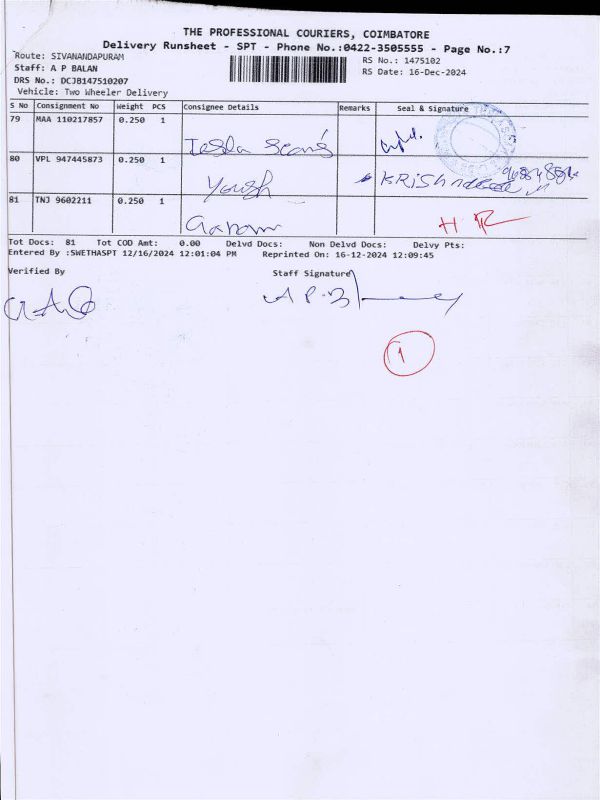 THE PROFESSIONAL COURIERS, COIMBATORE
Delivery Runsheet - SPT - Phone No.:0422-3505555 - Page No.:7
Route: SIVANANDAPURAM
RS No.: 1475102
Staff: A P BALAN
RS Date: 16-Dec-2024
DRS No.: DCJB147510207
Vehicle: Two Wheeler Delivery
S No Consignment No Weight PCS Consignee Details Remarks Seal & Signature
79 MAA 110217857 0.250 1
80 VPL 947445873 0.250 1
81 TNJ 9602211 0.250 1
H R
Tot Docs: 81 Tot COD Amt: 0.00 Delvd Docs: Non Delvd Docs: Delvy Pts:
Entered By :SWETHASPT 12/16/2024 12:01:04 PM Reprinted On: 16-12-2024 12:09:45
Verified By Staff Signature
A P. B
1